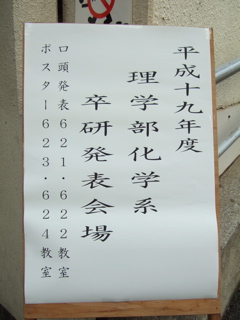 平成十九年度
理学部化学系
卒研発表会場
口頭発表621・622教室
ポスター623・624教室